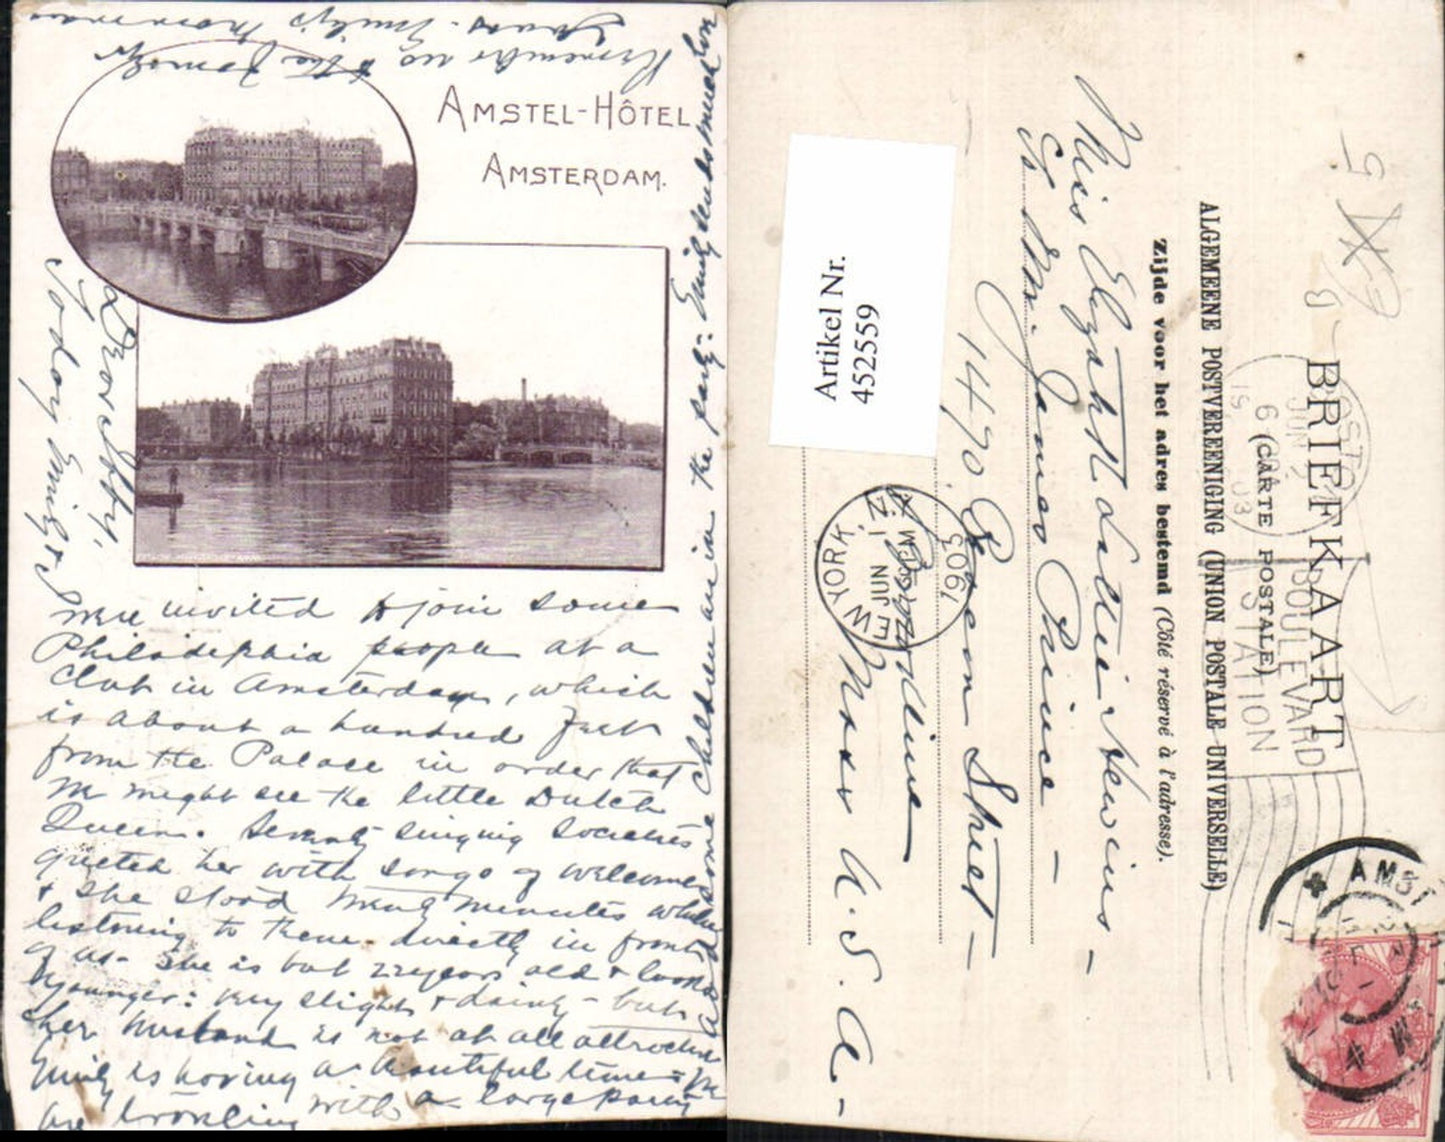 AMSTEL-HÔTEL
AMSTERDAM.
Dear Libby,
Today Emily &
I were invited to join some
Philadelphia people at a
Club in Amsterdam, which
is about a hundred feet
from the Palace in order that
we might see the little Dutch
Queen. Seventy singing societies
greeted her with songs of welcome
& she stood twenty minutes while
listening to them directly in front
of us. She is but 22 years old & looks
younger: very slight & dainty - but
her husband is not at all attractive
Emily is having a beautiful time: We
are traveling with a large party
and some children are in the party: Emily sends much love
Remember us to the family
Artikel Nr.
452559
Miss Elizabeth Lollie Hewins -
℅ Mr. James Prince -
1470 Beacon Street -
Brookline
Mass U. S. A. -
Zijde voor het adres bestemd (Côté réservé à l'adresse).
ALGEMEENE POSTVEREENIGING (UNION POSTALE UNIVERSELLE)
(CARTE POSTALE)
BRIEFKAART
NEW YORK, N.Y.
JUN 1
1903
BOSTON
JUN 2
6
1903
BOULEVARD
STATION
AMST